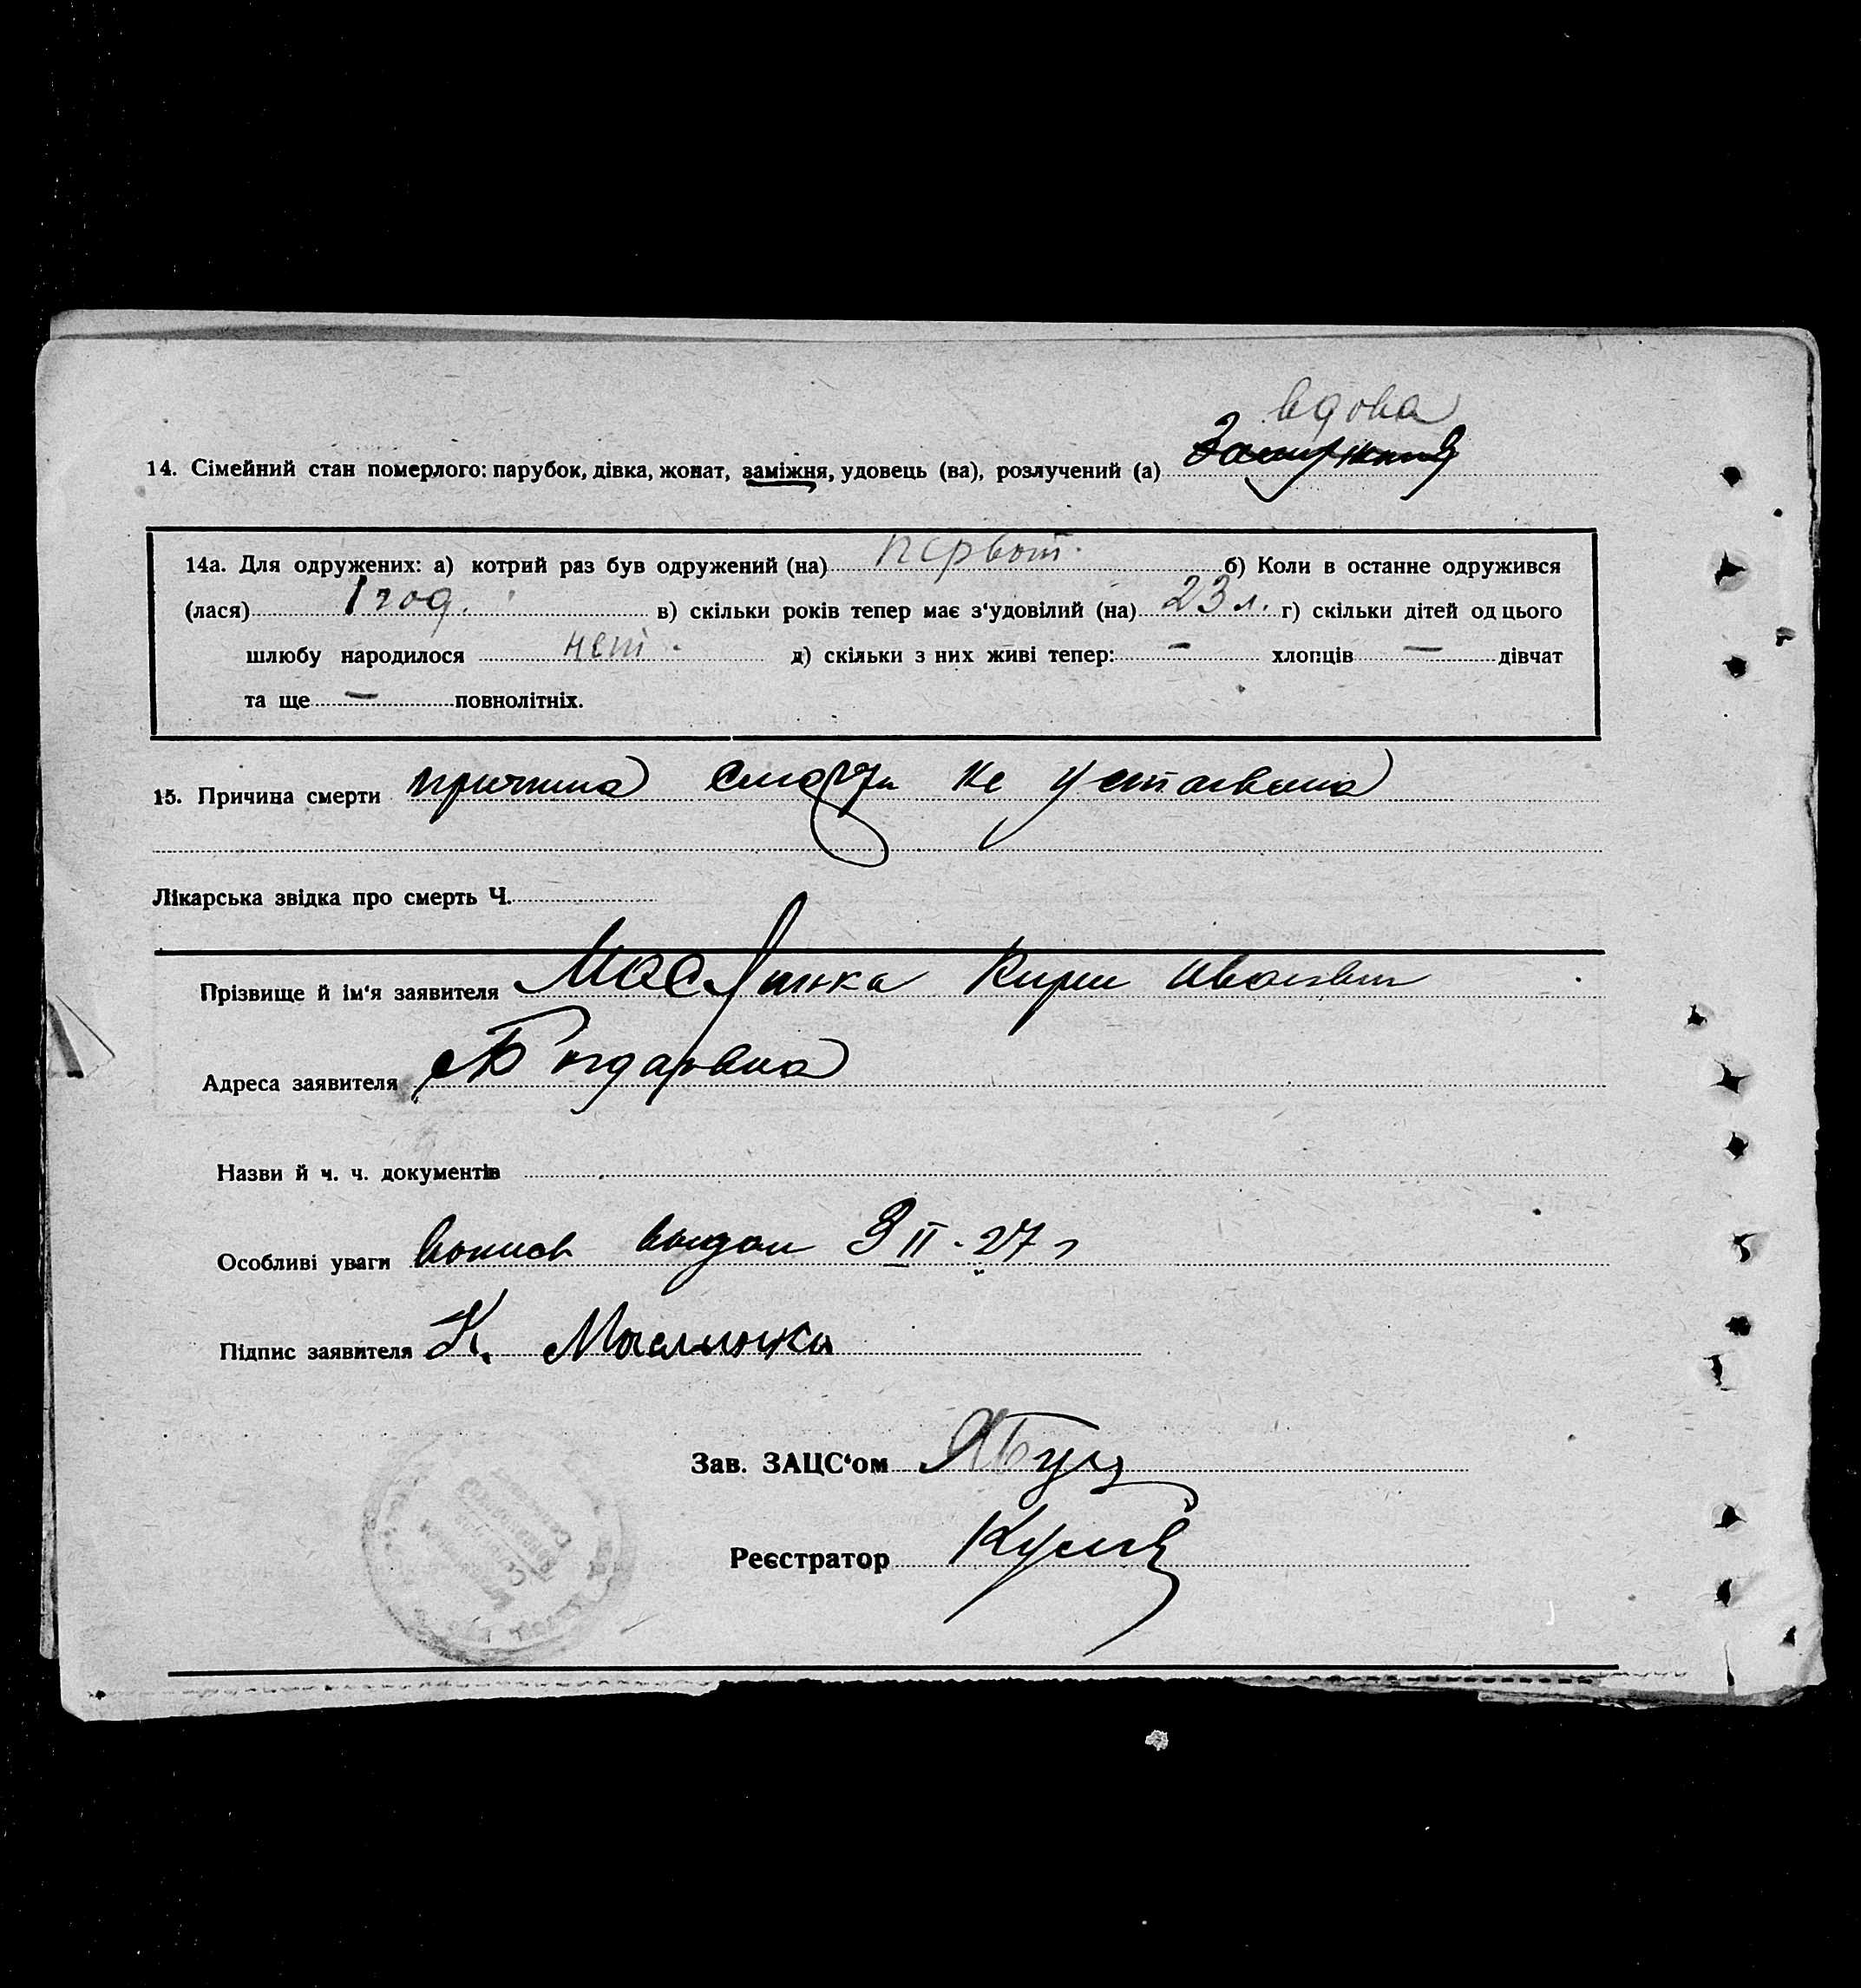 вдова
14. Сімейний стан померлого: парубок, дівка, жонат, заміжня, удовець (ва), розлучений (а) Замужняя
14а. Для одружених: а) котрий раз був одружений (на) первот. б) Коли в останне одружився
(лася) 1 год. в) скільки років тепер має з‘удовілий (на) 23 л. г) скільки дітей од цього
шлюбу народилося нет. д) скільки з них живі тепер: — хлопців — дівчат
та ще — повнолітніх.
15. Причина смерти причина смерти не установлена
Лікарська звідка про смерть Ч.
Прізвище й ім‘я заявителя Маслинка Кирил Иванович
Адреса заявителя
Назви й ч. ч. документів
Особливі уваги выдан 3 II - 27 г
Підпис заявителя К. Маслинка
Зав. ЗАЦС‘ом
Реєстратор